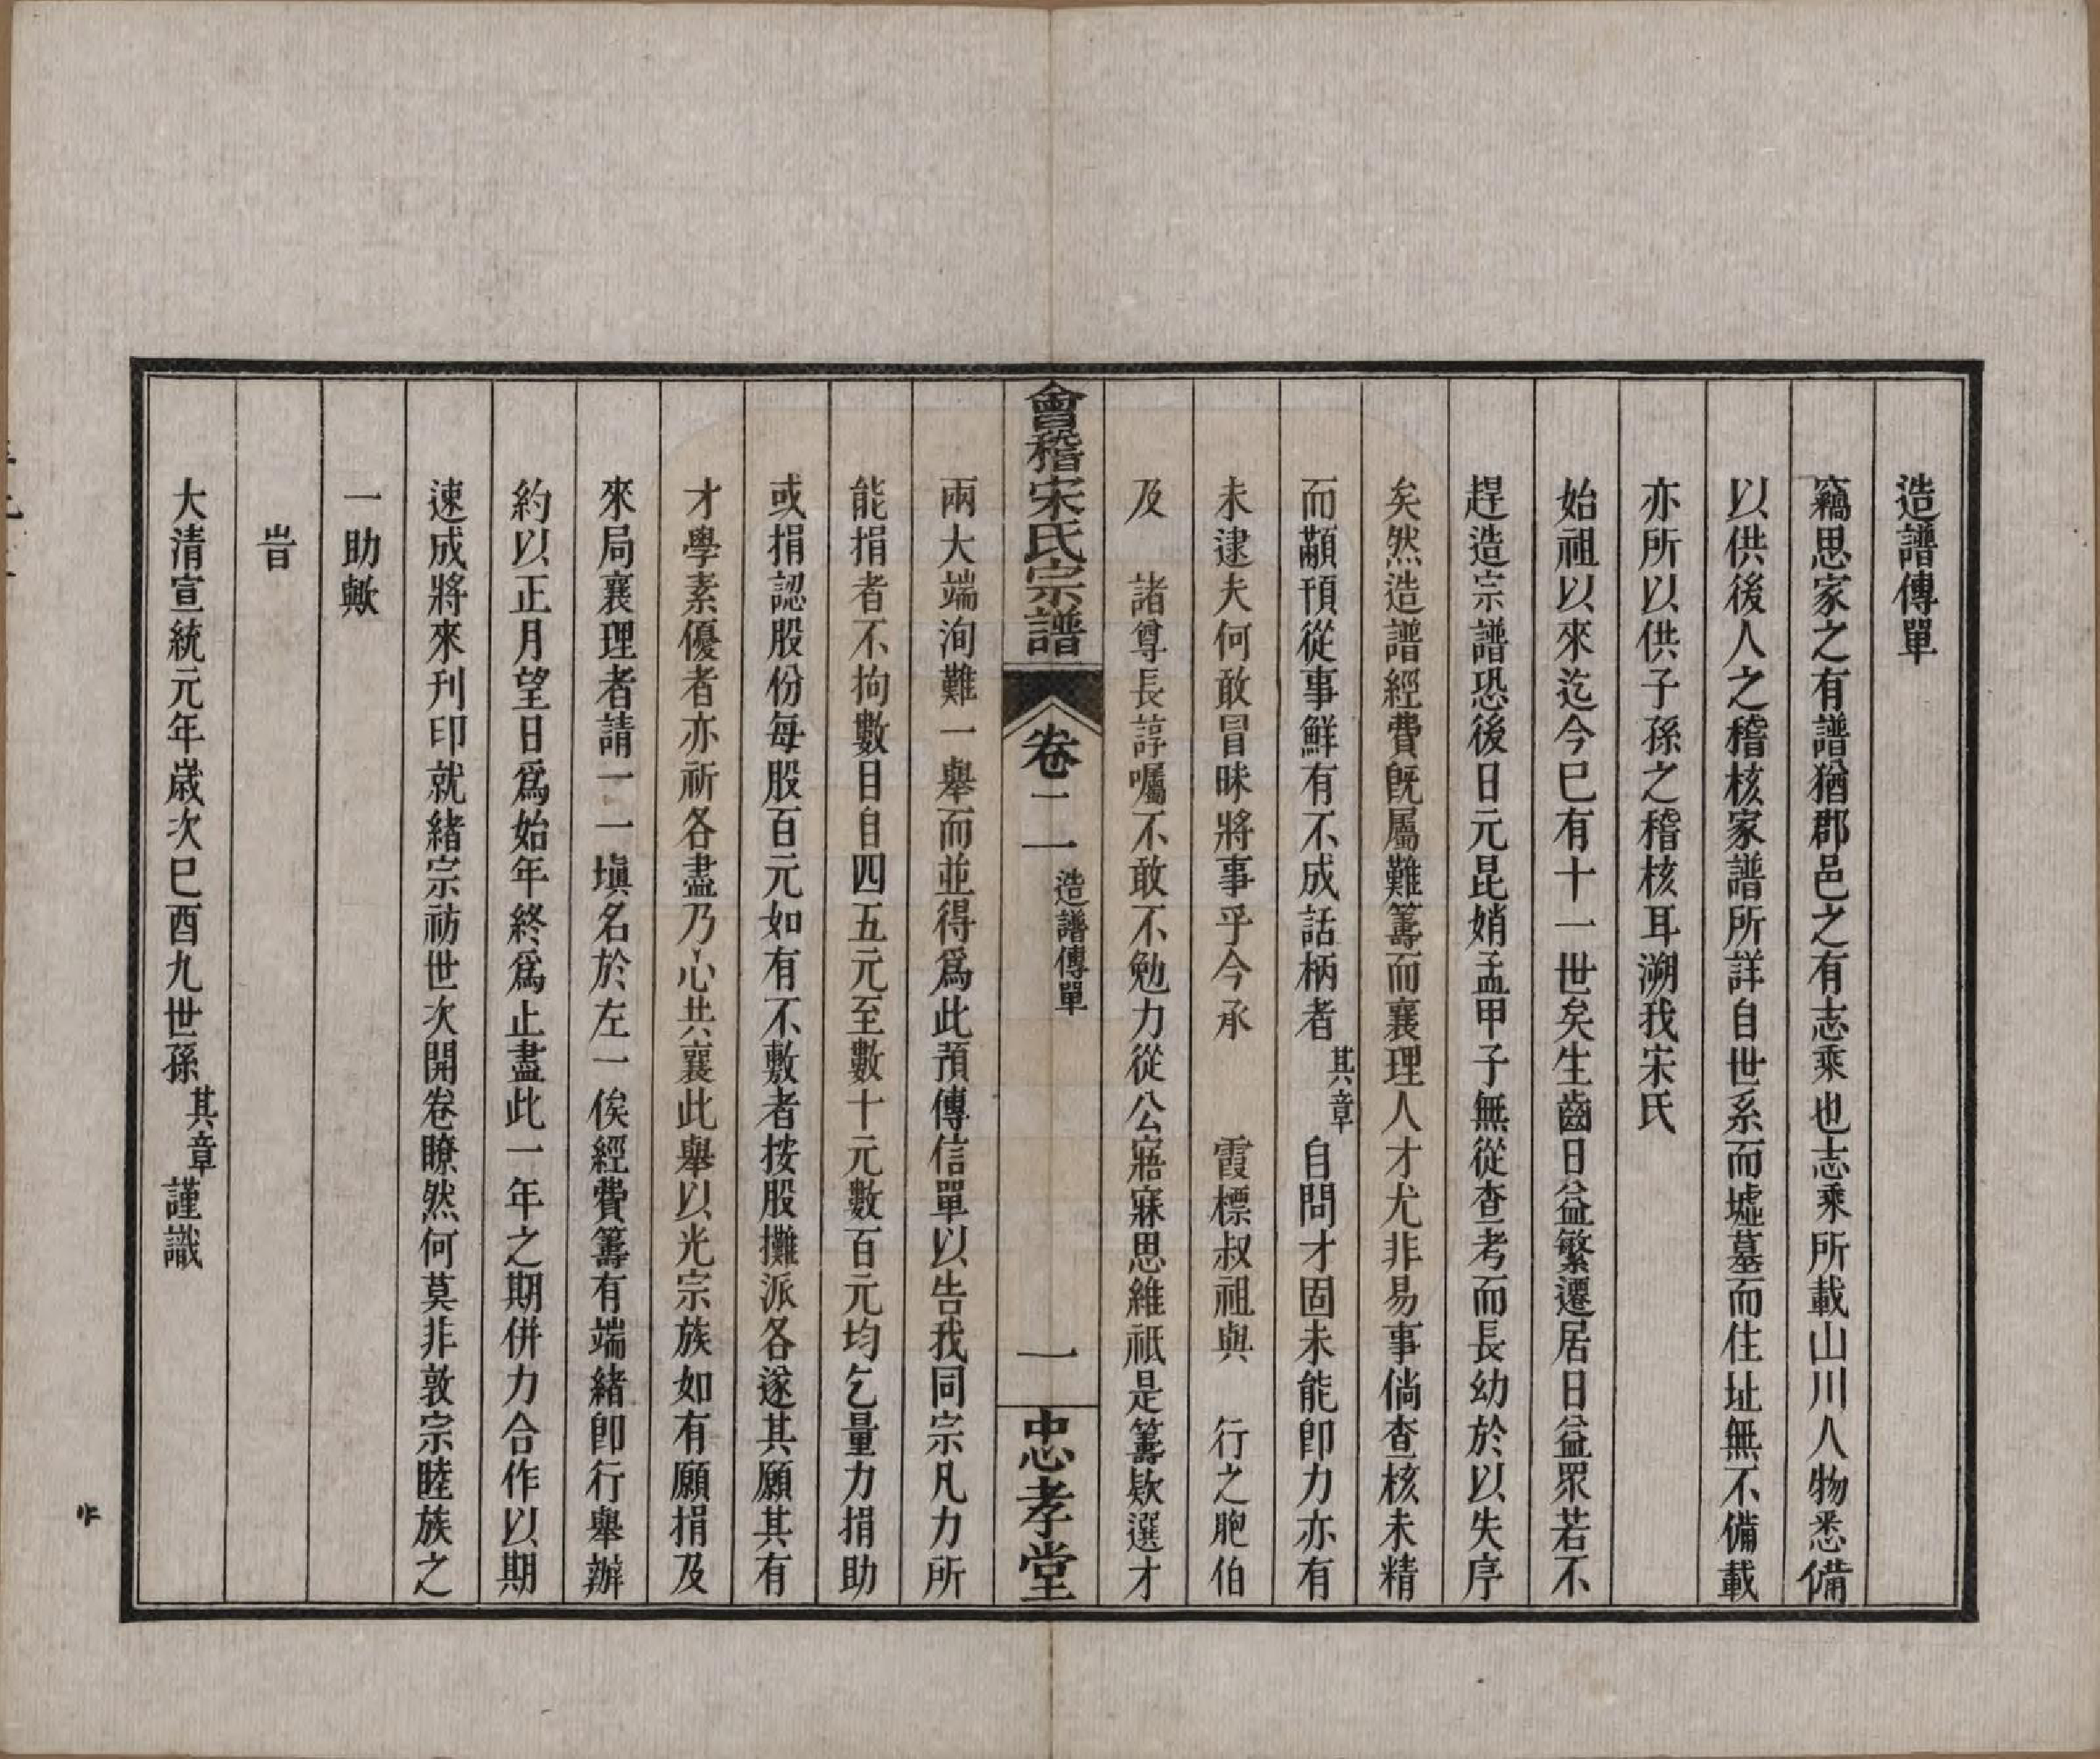 造譜傳單
竊思家之有譜猶郡邑之有志乘也志乘所載山川人物悉備
以供後人之稽核家譜所詳自世系而墟墓而住址無不備載
亦所以供子孫之稽核耳溯我宋氏
始祖以來迄今巳有十一世矣生齒日益繁遷居日益眾若不
趕造宗譜恐後日元昆娋孟甲子無從查考而長幼於以失序
矣然造譜經費既屬難籌而襄理人才尤非易事倘查核未精
而顢頇從事鮮有不成話柄者其章自問才固未能卽力亦有
未逮夫何敢冒昧將事乎今承　　霞標叔祖與　行之胞伯
及　諸尊長諄囑不敢不勉力從公寤寐思維祇是籌欵選才
會稽宋氏宗譜　卷二　一　造譜傳單　一　忠孝堂
兩大端洵難一舉而並得爲此預傳信單以告我同宗凡力所
能捐者不拘數目自四五元至數十元數百元均乞量力捐助
或捐認股份每股百元如有不敷者按股攤派各遂其願其有
才學素優者亦祈各盡乃心共襄此舉以光宗族如有願捐及
來局襄理者請一一塡名於左一俟經費籌有端緒卽行舉辦
約以正月望日爲始年終爲止盡此一年之期併力合作以期
速成將來刊印就緒宗祊世次開卷瞭然何莫非敦宗睦族之
一助歟
旹
大清宣統元年歲次巳酉九世孫其章謹識